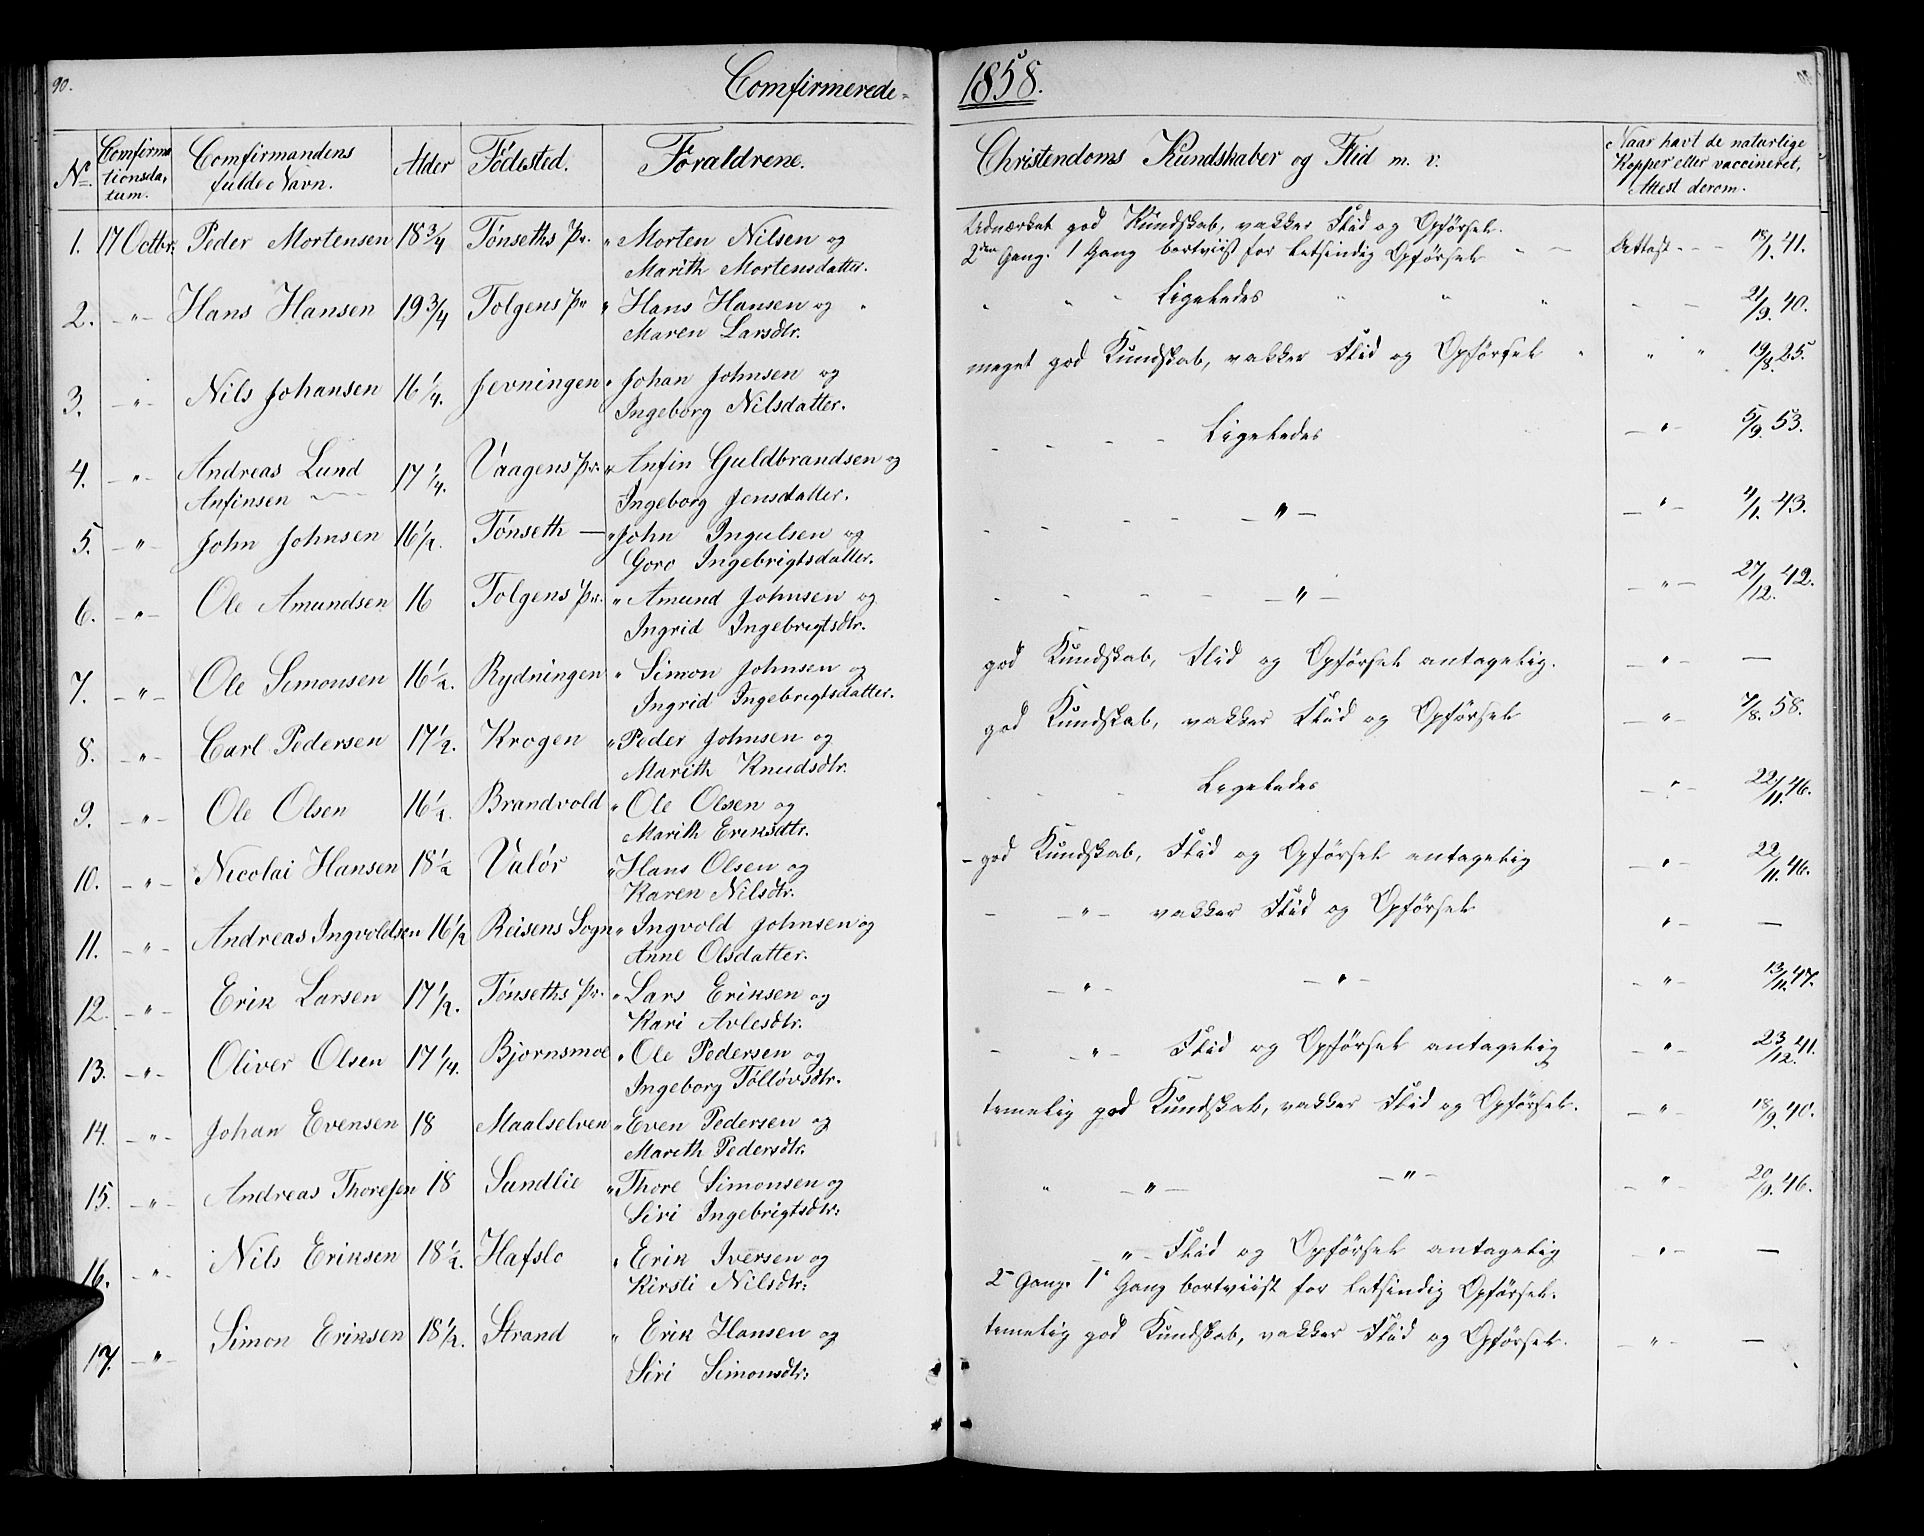 90.
Comfirmerede-
1858.
Nº.
Comfirma
tionsda,
tum.
Comfirmandens
fulde Navn.
Alder
Födested.
Foraldrene.
Christendoms Kundskaber og Flid m. v.
Naar havt de naturlige
Kopper eller vaccineret,
Attest derom.
1. 17 Octbr. Peder Mortensen 18 3/4 Tönseths Pr. " Morten Nilsen og
Marith Mortensdatter.
Udmærket god Kundskab, vakker Flid og Opförsel.
2den Gang. 1 Gang bortviist for letsindig Opförsel " — Attest - - - 18/1. 41.
2. -"- Hans Hansen 19 3/4 Tolgens Pr " Hans Hansen og
Maren Larsdtr.
" " " Ligeledes " " " - - 21/9. 40.
3. -"- Nils Johansen 16 1/4. Jevningen " Johan Johnsen og
Ingeborg Nilsdatter.
meget god Kundskab, vakker Flid og Opförsel " " " 19/8. 25.
4. -"- Andreas Lund
Anfinsen 17 1/4. Vaagens Pr. " Anfin Guldbrandsen og
Ingeborg Jensdatter.
- - - - Ligeledes -"- 5/9. 53.
5. -"- John Johnsen 16 1/2. Tönseth — " John Ingulsen og
Goro Ingebrigtsdatter.
- - - - -"- -"- 4/1. 43.
6. -"- Ole Amundsen 16 Tolgens Pr. " Amund Johnsen og
Ingrid Ingebrigtsdtr.
- - - - -"- -"- 27/12. 42.
7. -"- Ole Simonsen 16 1/2. Rydningen " Simon Johnsen og
Ingrid Ingebrigtsdatter.
god Kundskab, Flid og Opförsel antagelig. -"- —
8. -"- Carl Pedersen 17 1/2. Krogen " Peder Johnsen og
Marith Knudsdtr.
god Kundskab, vakker Flid og Opförsel -"- 7/8. 58.
9. -"- Ole Olsen 16 1/2. Brandvold " Ole Olsen og
Marith Eriksdtr.
- - - Ligeledes -"- 22/11. 46.
10. -"- Nicolai Hansen 18 1/2 Valör " Hans Olsen og
Karen Nilsdtr.
- god Kundskab, Flid og Opförsel antagelig -"- 22/11. 46.
11. -"- Andreas Ingvoldsen 16 1/2 Reisens Sogn " Ingvold Johnsen og
Anne Olsdatter.
- -"- vakker Flid og Opförsel "- —
12. -"- Erik Larsen 17 1/2. Tönseths Pr. " Lars Eriksen og
Kari Avlesdtr.
-"- -"- -"- 13/11. 47.
13. -"- Oliver Olsen 17 1/4. Bjornsmoe " Ole Pedersen og
Ingeborg Töllövsdtr.
- -"- Flid og Opförsel antagelig -"- 23/12. 41.
14. -"- Johan Evensen 18 Maalselven " Even Pedersen og
Marith Pedersdtr.
temelig god Kundskab, vakker Flid og Opförsel. -"- 18/9. 40.
15. -"- Andreas Thoresen 18 Sundlie " Thore Simonsen og
Siri Ingebrigtsdtr:
" -"- -"- -"- 20/9. 46.
16. -"- Nils Eriksen 18 1/2. Hafslo " Erik Iversen og
Kirsti Nilsdtr:
-"- Flid og Opförsel antagelig -"- —
2- Gang. 1" Gang bortviist for letsindig Opförsel.
17. -"- Simon Eriksen 18 1/2. Strand " Erik Hansen og
Siri Simonsdtr:
temelig god Kundskab, vakker Flid og Opförsel. -"- —